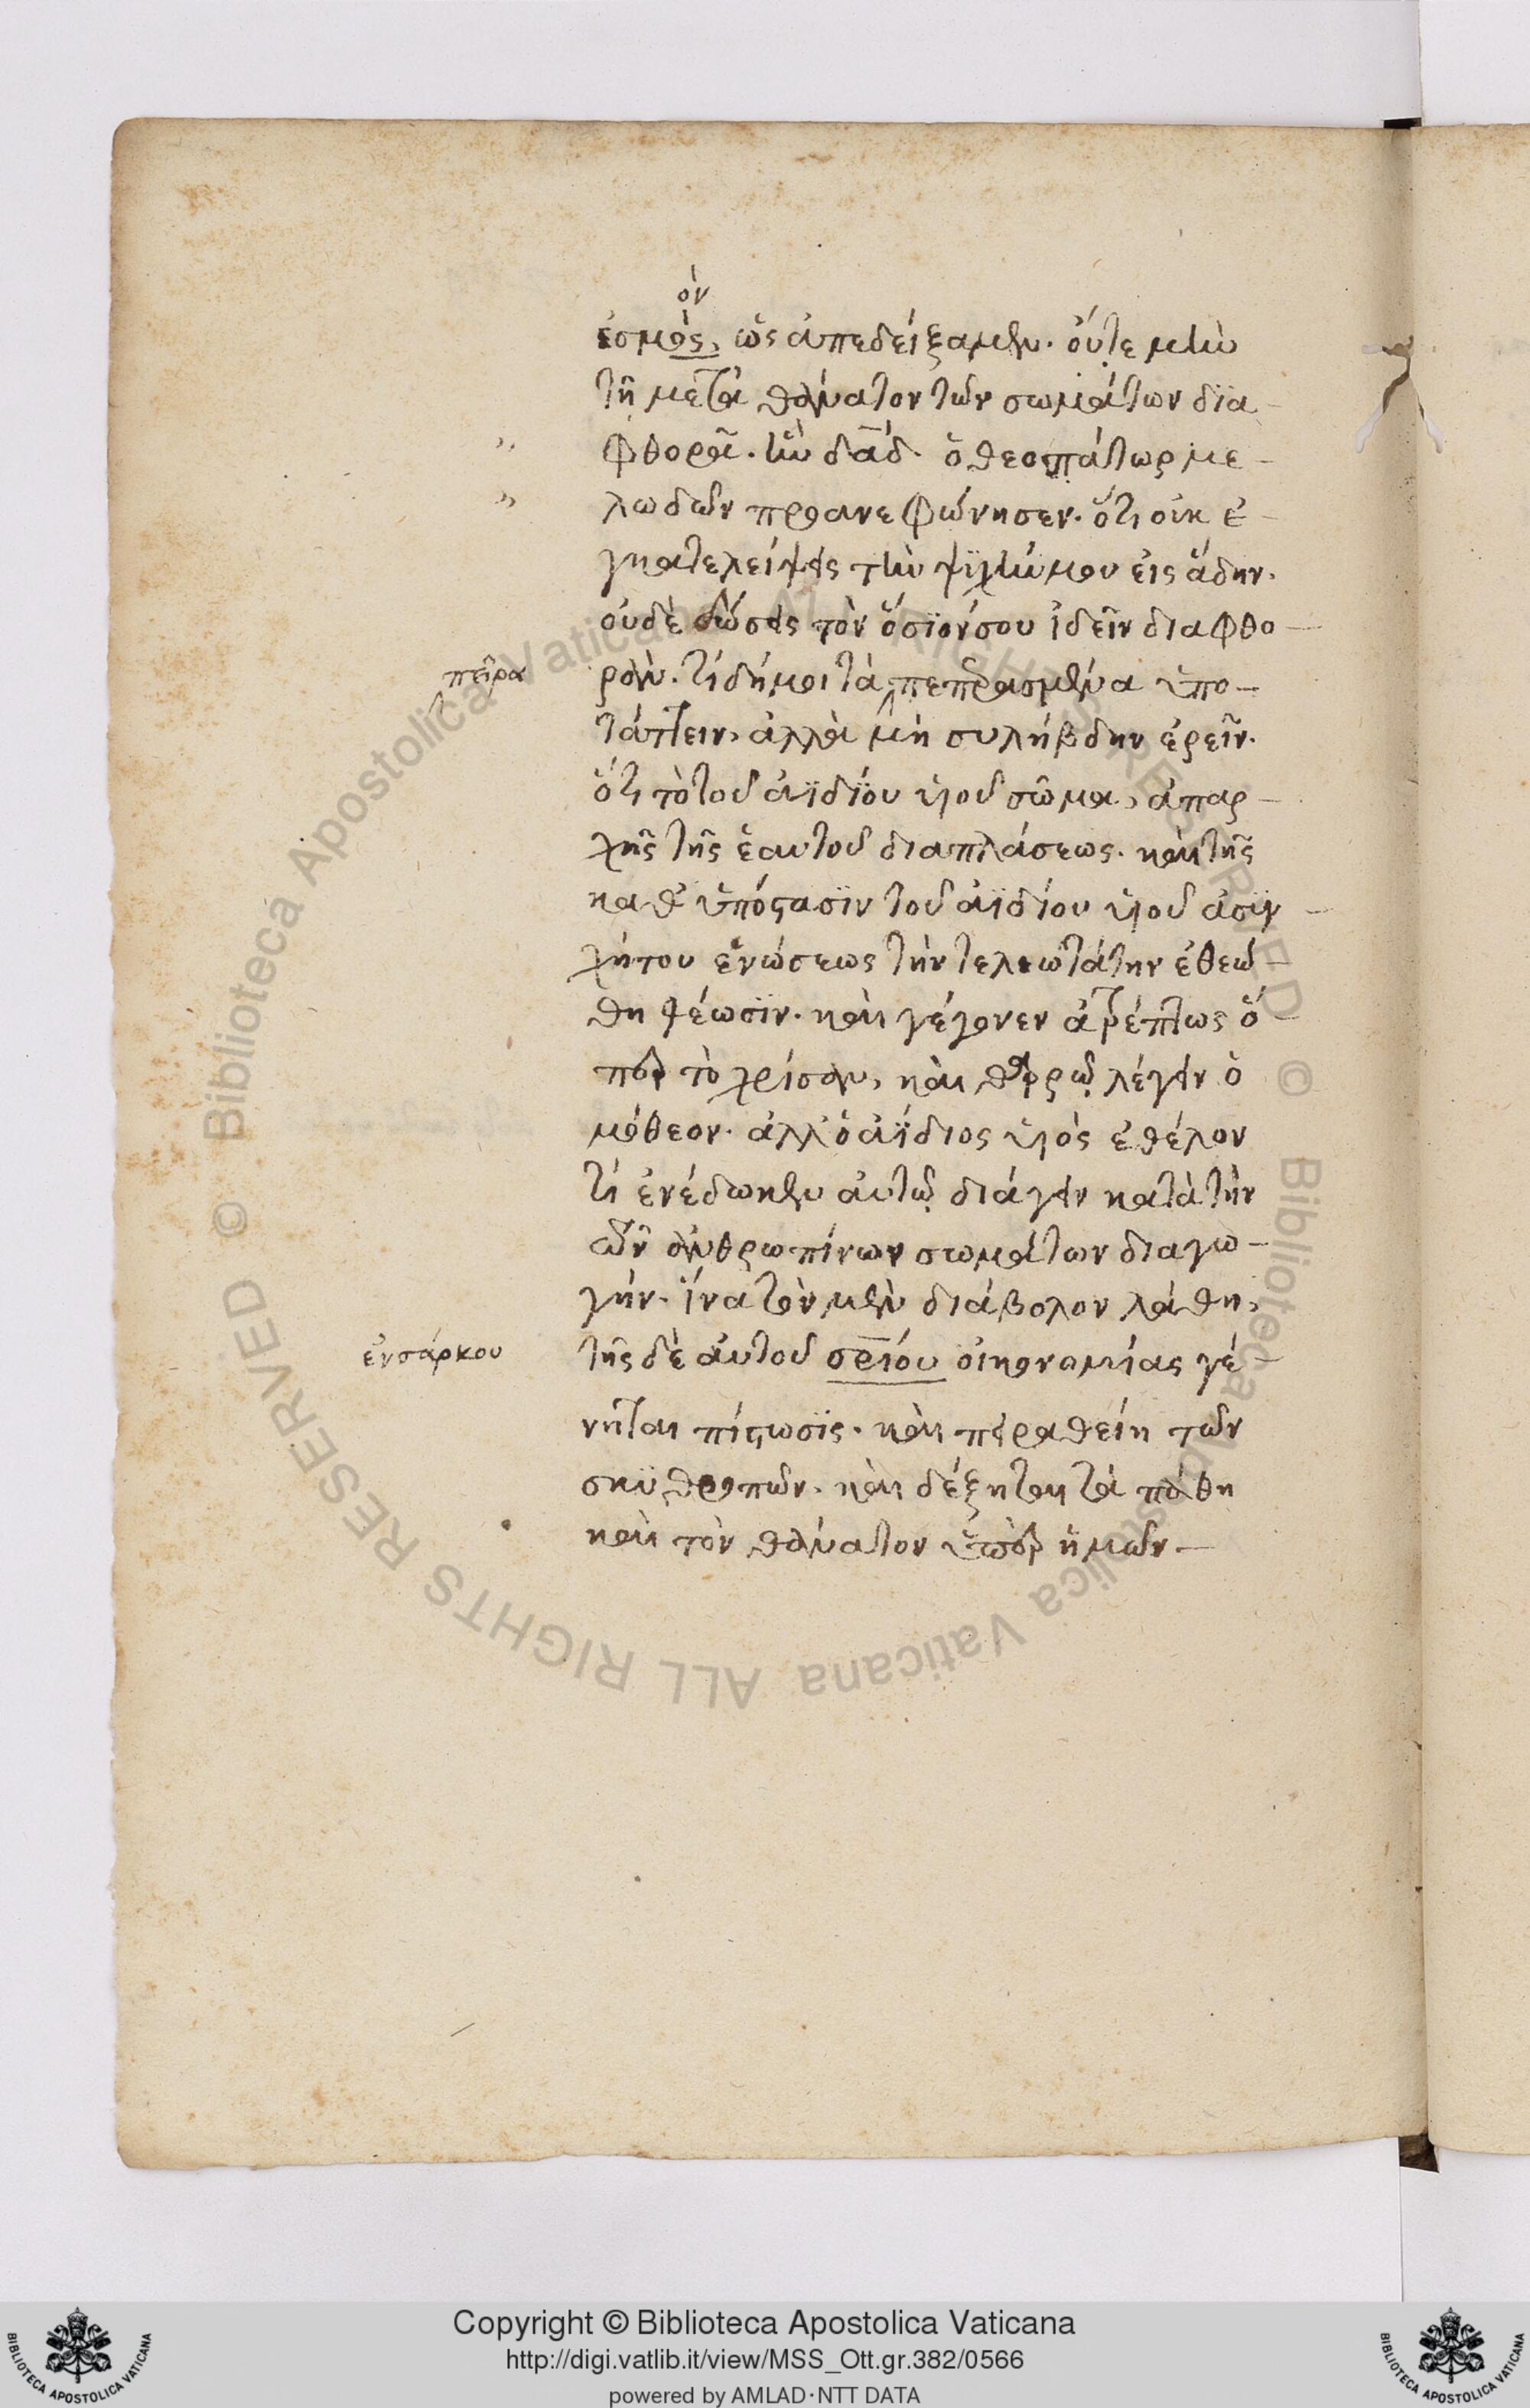 όν
ἐσμὸς, ὡς ἀπεδείξαμεν. οὔτε μὴν
τῇ μετὰ θάνατον τῶν σωμάτων δϊα
φθορᾷ. ἣν δᾱδ ὁ θεοπάτωρ με
λωδῶν προανεφώνησεν. ὅτι οὐκ ἐ
γκατελείψεις τὴν ψϋχήν μου εἰς ᾅδην.
οὐδὲ δώσεις τὸν ὅσϊόν σου ἰδεῖν διαφθο
πεῖρα
ράν. τί δή μοι τὰ πεπρασμένα ὑπο
τάττειν, ἀλλὰ μὴ συλήβδην ἐρεῖν.
ὅτι τὸ τοῦ ἀϊδΐου υἱοῦ σῶμα, ἀπαρ
χῆς τῆς ἑαυτοῦ διαπλάσεως. καὶ τῆς
καθ' ὑπόστασϊν τοῦ ἀϊδίου υἱοῦ ἀσυγ
χήτου ἑνώσεως τὴν τελεωτάτην ἐθεώ
θη θέωσϊν. καὶ γέγονεν ἀτρέπτως ὅ
περ τὸ χρίσαν, καὶ θαρρῶ λέγειν ὁ
μόθεον. ἀλλ' ὁ ἀΐδιος υἱὸς ἐθέλον
τί ἐνέδωκεν αὐτῷ διάγειν κατὰ τὴν
τῶν ἀνθρωπίνων σωμάτων διαγω
γήν. ἵνα τὸν μὲν διάβολον λάθη,
ἐνσάρκου
τῆς δὲ αὐτοῦ σρ̅ιόυ οἰκονομίας γέ
νηται πίστωσϊς. καὶ πειραθείη τῶν
σκϋθροπῶν. καὶ δέξηται τὰ πάθη
καὶ τὸν θάνατον ὑπὲρ ἡμῶν
Copyright © Biblioteca Apostolica Vaticana
http://digi.vatlib.it/view/MSS_Ott.gr.382/0566
powered by AMLAD·NTT DATA